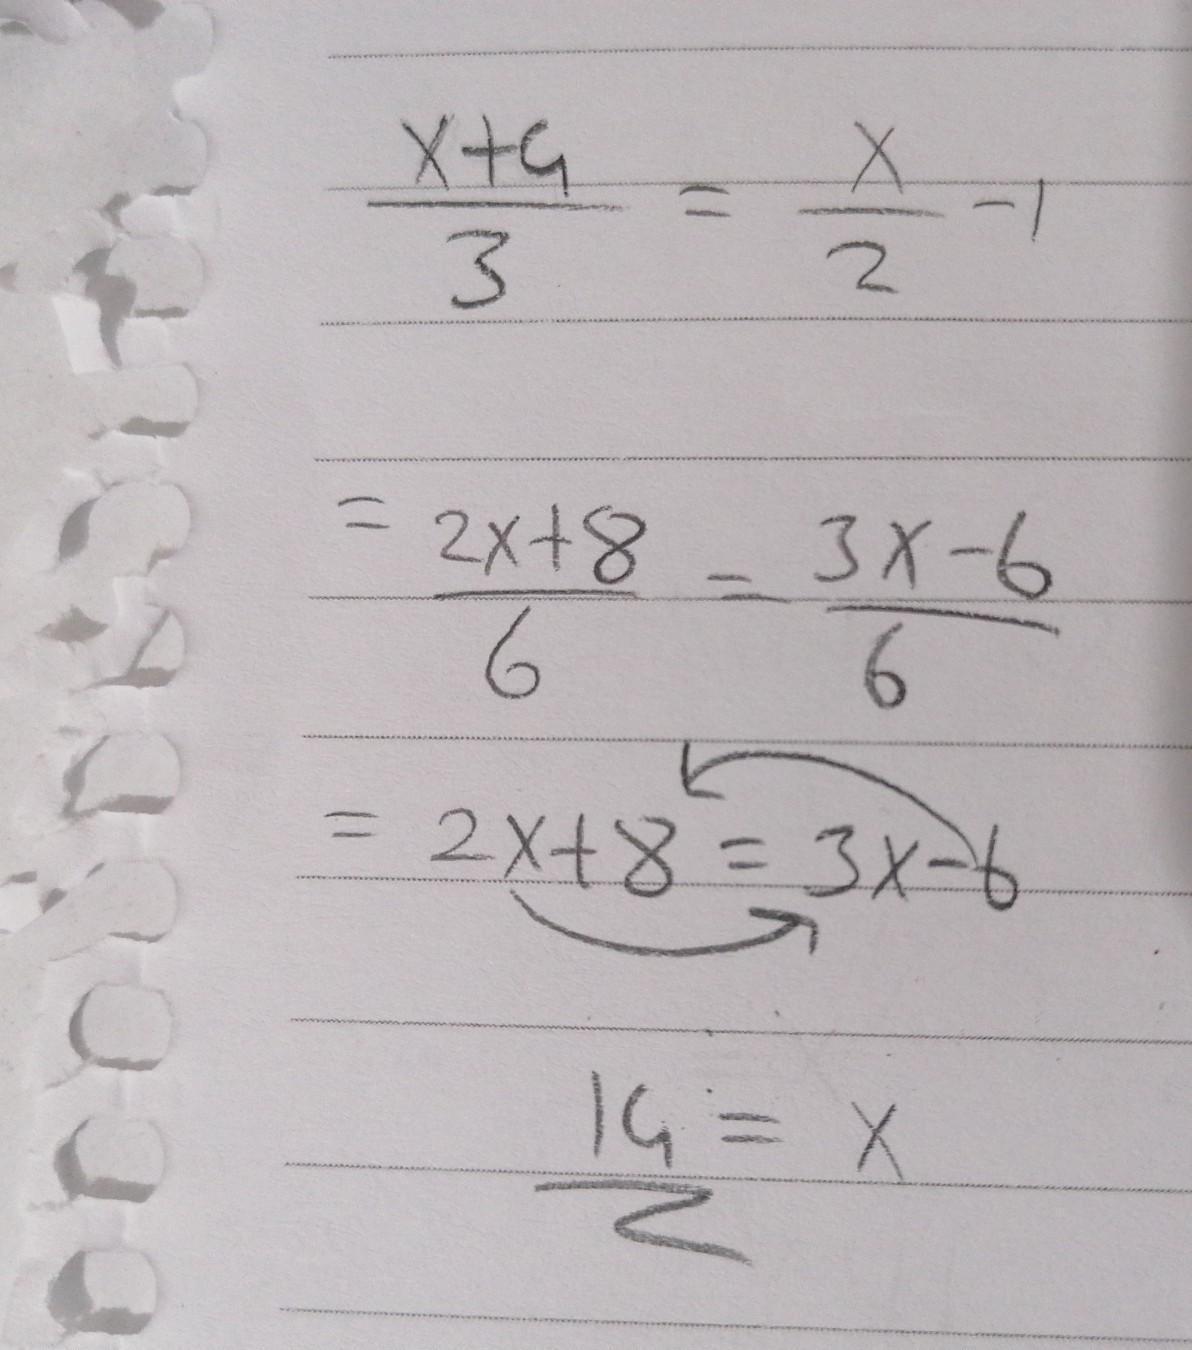 x+4/3 = x/2 -1
= 2x+8/6 = 3x-6/6
= 2x+8 = 3x-6
14 = x